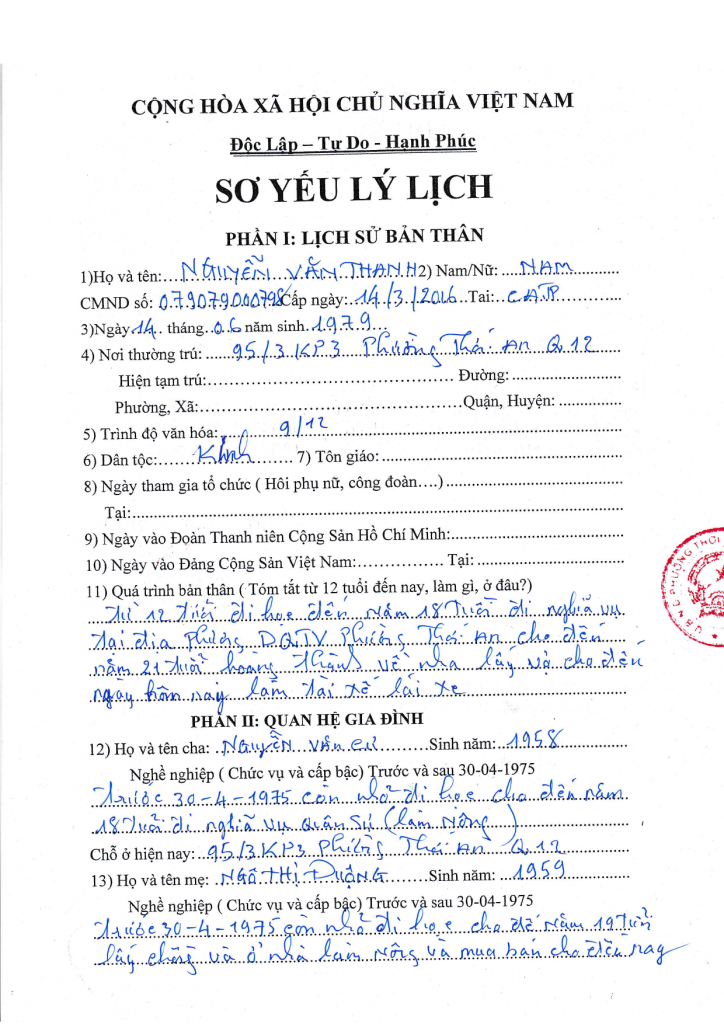 CỘNG HÒA XÃ HỘI CHỦ NGHĨA VIỆT NAM
Độc Lập – Tự Do - Hạnh Phúc
SƠ YẾU LÝ LỊCH
PHẦN I: LỊCH SỬ BẢN THÂN
1)Họ và tên:....NGUYỄN VĂN THANH2) Nam/Nữ: ....NAM............
CMND số: 079079000798Cấp ngày:.14./3./2016..Tai:..CATP...............
3)Ngày14.. tháng..06 năm sinh..1979...
4) Nơi thường trú: ......95/3 KP3 Phường Thới An Q12......
Hiện tạm trú:............................................. Đường: .....................
Phường, Xã:................................................Quận, Huyện: ...............
5) Trình độ văn hóa:............9/12............
6) Dân tộc:........Kinh........ 7) Tôn giáo:............................................
8) Ngày tham gia tổ chức ( Hôi phụ nữ, công đoàn….).................................
Tại:..........................................................................................
9) Ngày vào Đoàn Thanh niên Cộng Sản Hồ Chí Minh:................................
10) Ngày vào Đảng Cộng Sản Việt Nam:................ Tại:...........................
11) Quá trình bản thân ( Tóm tắt từ 12 tuổi đến nay, làm gì, ở đâu?)
Từ 12 tuổi đi học đến năm 18 tuổi đi nghĩa vụ
tại địa phương DQTV Phường Thới An cho đến
năm 21 tuổi hoàng thành về nha lấy vợ cho đến
ngày hôm nay làm tài xế lái xe
PHẦN II: QUAN HỆ GIA ĐÌNH
12) Họ và tên cha: ..Nguyễn Văn Cư............Sinh năm:..1958...............
Nghề nghiệp ( Chức vụ và cấp bậc) Trước và sau 30-04-1975
Trước 30-4-1975 còn nhỏ đi học cho đến năm
18 tuổi đi nghĩa vụ quân sự (làm nông)
Chỗ ở hiện nay:..95/3 KP3 Phường Thới An Q 12
13) Họ và tên mẹ: ..NGÔ THỊ ĐUỘNG........Sinh năm: ...1959...............
Nghề nghiệp ( Chức vụ và cấp bậc) Trước và sau 30-04-1975
Trước 30-4-1975 còn nhỏ đi học cho đế năm 19 tuổi
lấy chồng và ở nhà làm nông và mua bán cho đến nay
U.B.N.D PHƯỜNG THỚI